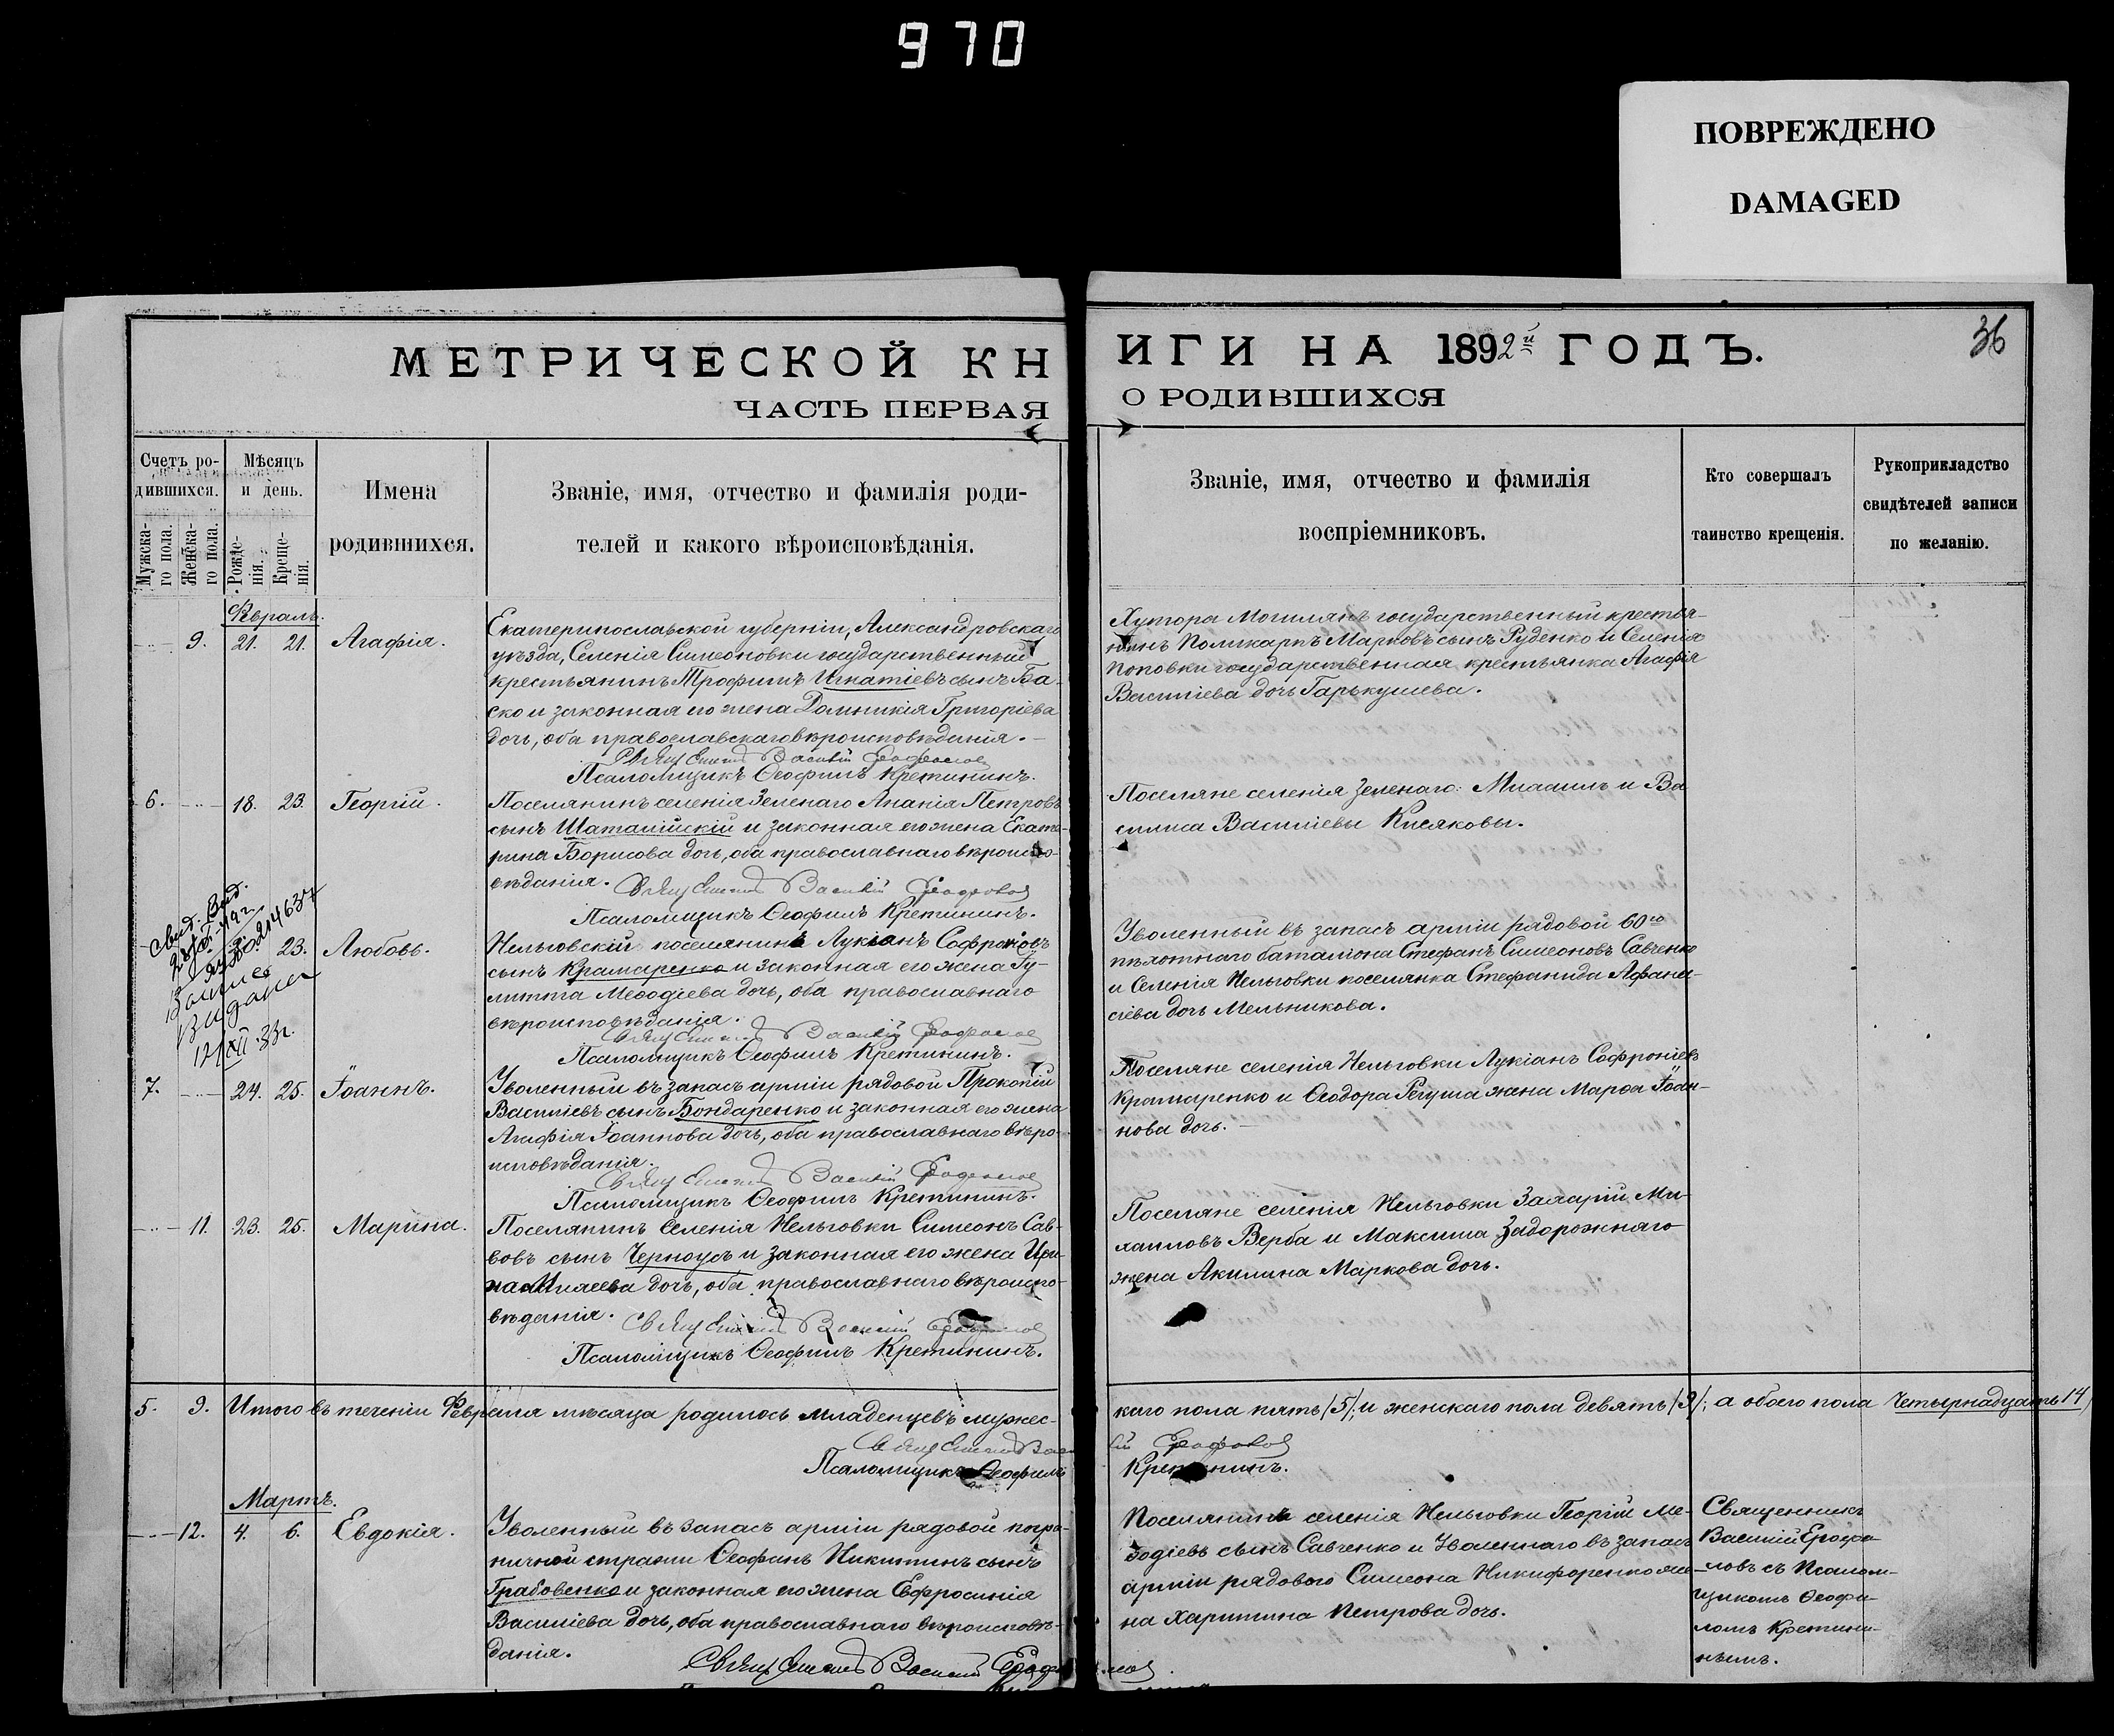 970
ПОВРЕЖДЕНО
DAMAGED
МЕТРИЧЕСКОЙ КНИГИ НА 1892й ГОДЪ.
36
ЧАСТЬ ПЕРВАЯ О РОДИВШИХСЯ
Счетъ ро-
дившихся.
Мужска-
го пола.
Женска-
го пола.
Мѣсяцъ
и день.
Рожде-
нія.
Креще-
нія.
Имена
родившихся.
Званіе, имя, отчество и фамилія роди-
телей и какого вѣроисповѣданія.
Званіе, имя, отчество и фамилія
воспріемниковъ.
Кто совершалъ
таинство крещенія.
Рукоприкладство
свидѣтелей записи
по желанію.
Февраль.
9. 21. 21. Агафія.
Екатеринославской губерніи, Александровскаго
уѣзда, Селенія Симеоновки государственный
крестьянинъ Трофимъ Игнатіевъ сынъ Ба-
ско и законная его жена Домникія Григоріева
дочь, оба православскаго вѣроисповѣданія.
Священникъ Василій Ерофаловъ
Псаломщикъ Ѳеофилъ Кретининъ.
Хутора Могилянъ государственный крестья-
нинъ Поликарпъ Марковъ сынъ Руденко и Селенія
Поповки государственная крестьянка Агафія
Василіева дочь Гарькушева.
6. 18. 23. Георгій.
Поселянинъ селенія Зеленаго Ананія Петровъ
сынъ Шаталійскій и законная его жена Екате-
рина Борисова дочь, оба православнаго вѣроиспо-
вѣданія. Священникъ Василій Ерофаловъ
Псаломщикъ Ѳеофилъ Кретининъ.
Поселяне селенія Зеленаго: Михаилъ и Ва
силиса Василіевы Кисяковы.
Свид. Вид.
Видана
12/XII 33г.
23. Любовь.
Нельговскій поселянинъ Лукіанъ Софроніовъ
сынъ Крамаренко и законная его жена Іу-
литта Меѳодіева дочь, оба православнаго
вѣроисповѣданія.
Священникъ Василій Ерофаловъ
Псаломщикъ Ѳеофилъ Кретининъ.
Уволенный въ запасъ арміи рядовой 60го
пѣхотнаго баталіона Стефанъ Симеоновъ Савченко
и Селенія Нельговки поселянка Стефанида Афана-
сіева дочь Мельникова.
7. 24. 25. Іоаннъ.
Уволенный въ запасъ арміи рядовой Прокопій
Василіевъ сынъ Бондаренко и законная его жена
Агафія Іоаннова дочь, оба православнаго вѣро-
исповѣданія.
Священникъ Василій Ерофаловъ
Псаломщикъ Ѳеофилъ Кретининъ.
Поселяне селенія Нельговки Лукіанъ Софроніевъ
Крамаренко и Ѳеодора Регуша жена Марѳа Іоан-
нова дочь.
11. 23. 25. Марина.
Поселянинъ Селенія Нельговки Симеонъ Сав-
вовъ сынъ Черноусъ и законная его жена Ири-
на дочь, оба православнаго вѣроиспо-
вѣданія. Священникъ Василій Ерофаловъ
Псаломщикъ Ѳеофилъ Кретининъ.
Поселяне селенія Нельговки Захарій Ми-
хаиловъ Верба и Максима Задорожняго
жена Акилина Маркова дочь.
5. 9. Итого въ теченіи Февраля мѣсяца родилось младенцевъ мужес-
каго пола пять /5/, и женскаго пола девять /9/; а обоего пола Четырнадцать 14/
Священникъ Василій Ерофаловъ
Псаломщикъ Ѳеофилъ Кретининъ.
Мартъ.
12. 4. 6. Евдокія.
Уволенный въ запасъ арміи рядовой погра-
ничной стражи Ѳеофанъ Никитинъ сынъ
Грабовенко и законная его жена Евфросинія
Василіева дочь, оба православнаго вѣроисповѣ-
данія.
Священникъ Василій Ерофаловъ
Поселянинъ селенія Нельговки Георгій Ме-
ѳодіевъ сынъ Савченко и Уволеннаго въ запасъ
арміи рядового Симеона Никифоренко же-
на Харитина Петрова дочь.
Священникъ
Василій Ерофа-
ловъ съ Псалом-
щикомъ Ѳеофи-
ломъ Кретини-
нымъ.